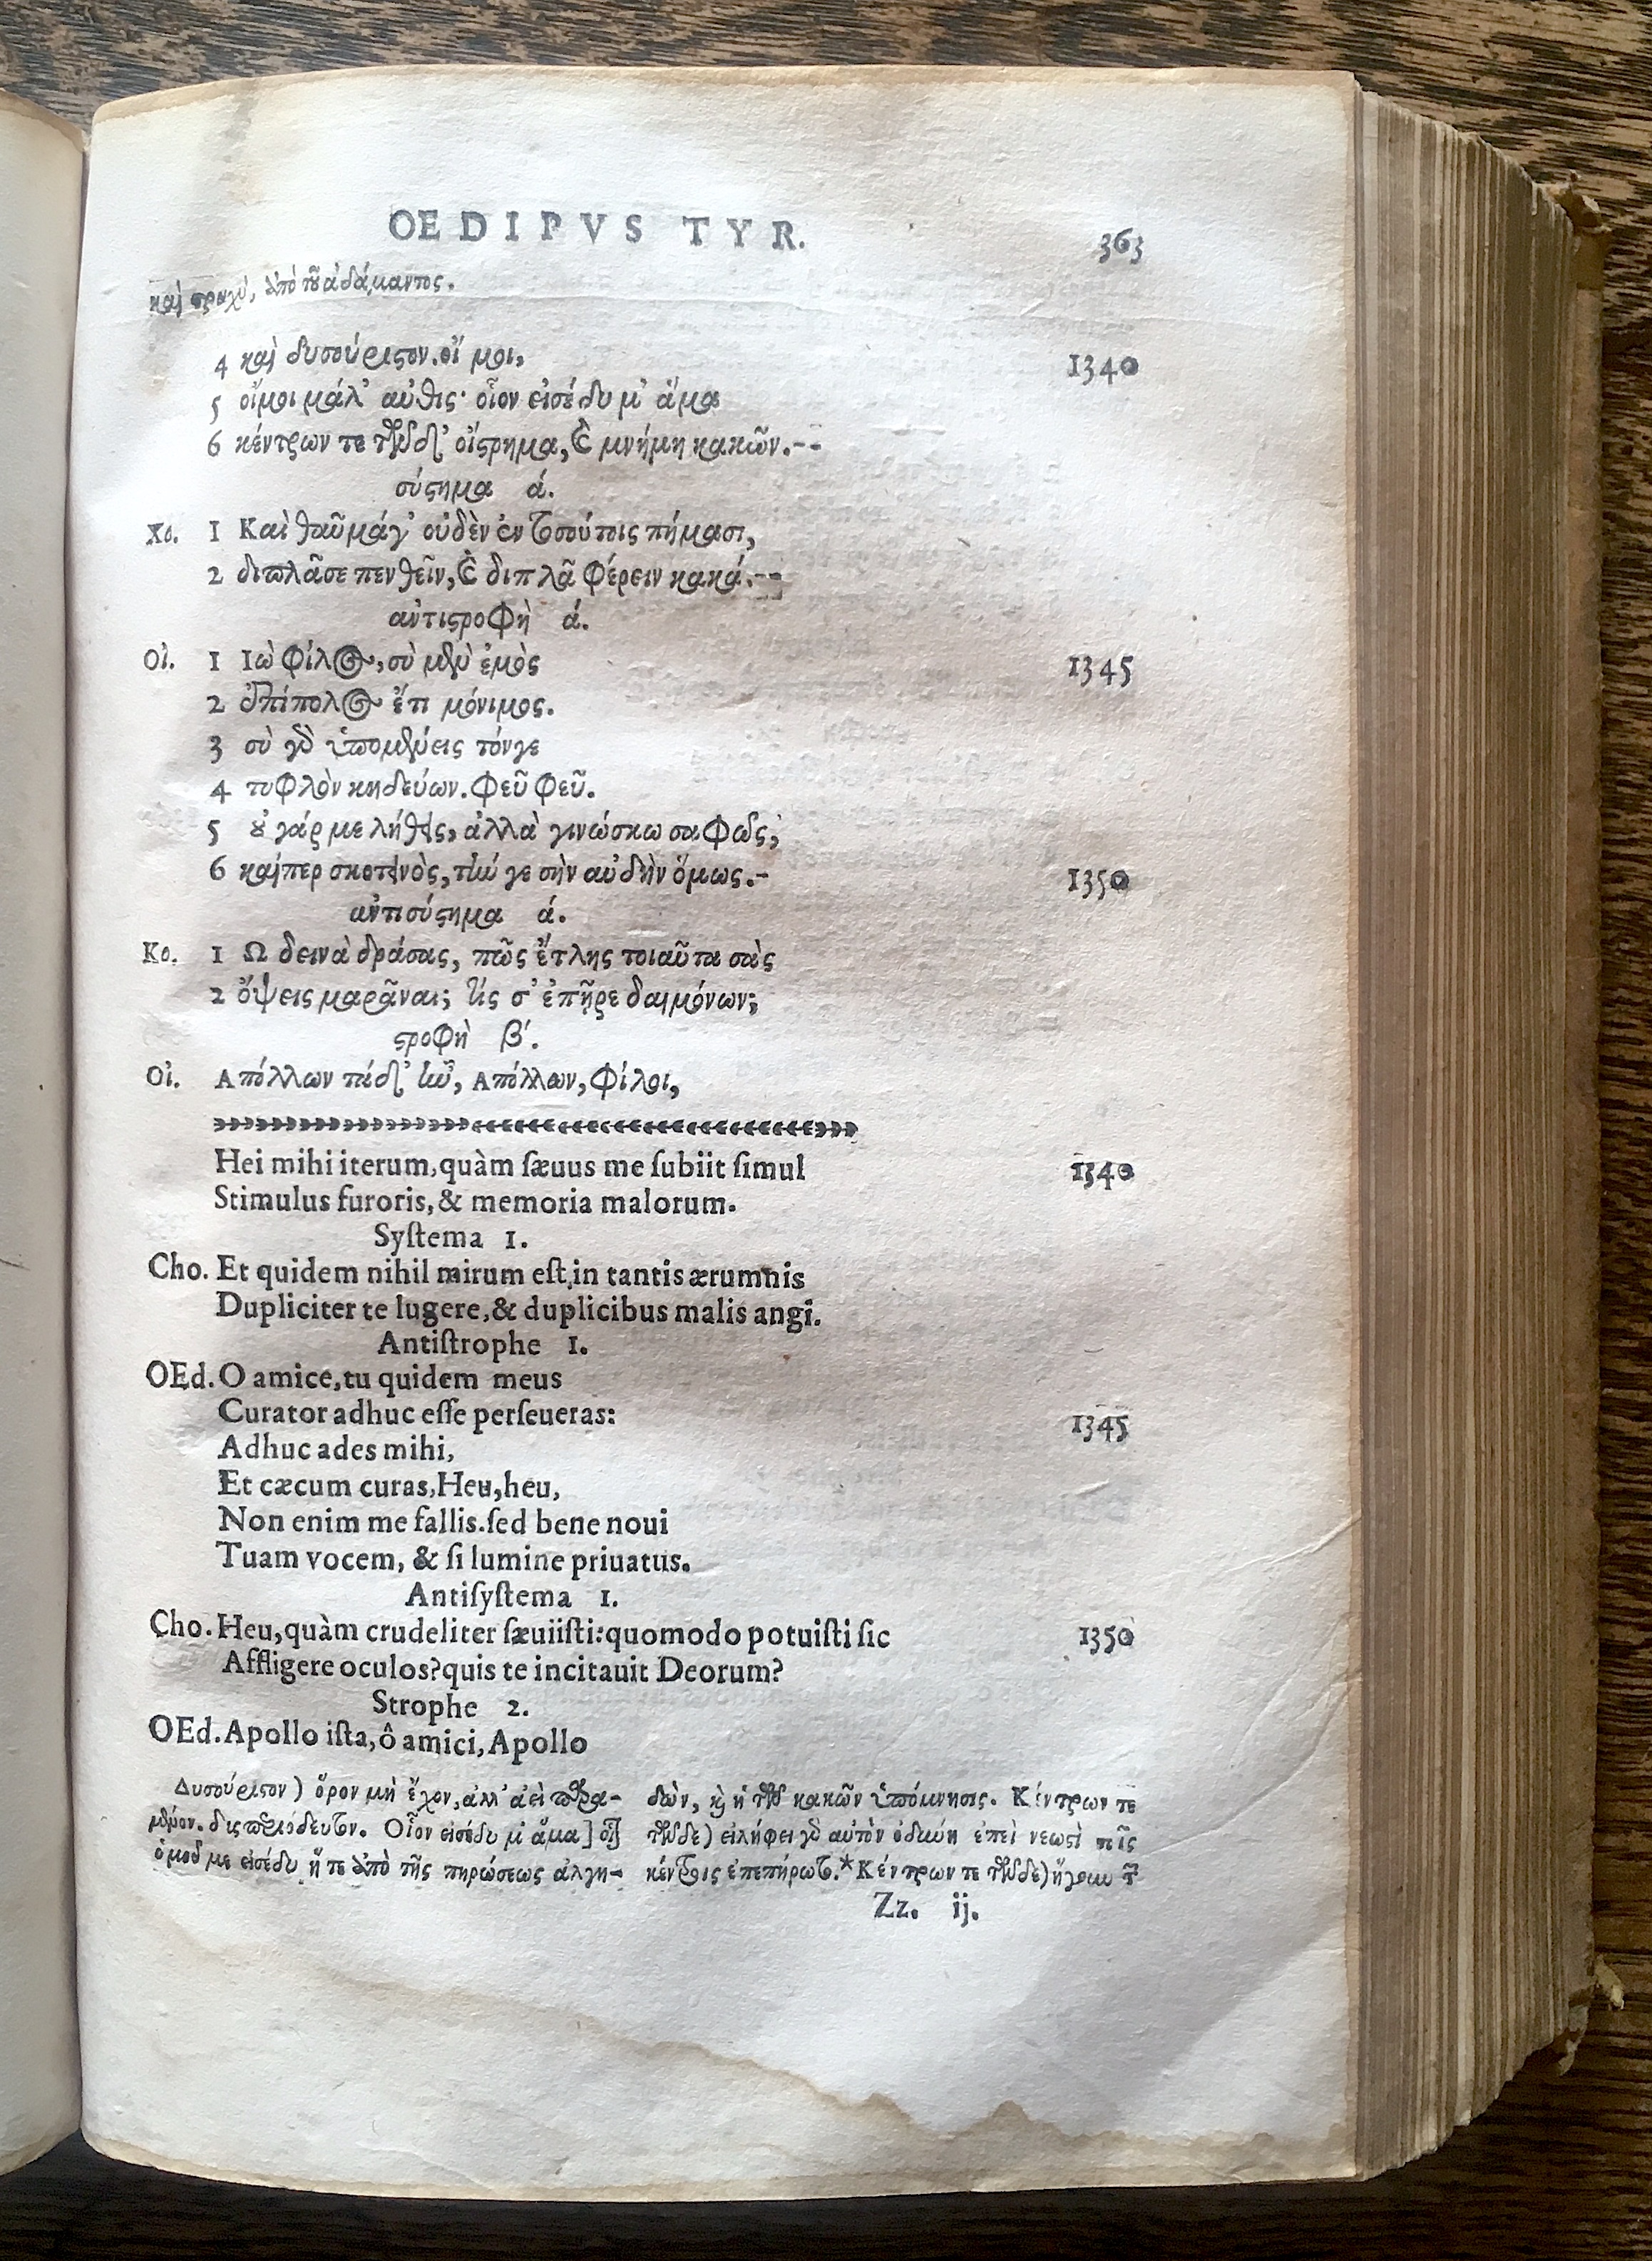 OEDIPVS TYR. 363
καὶ τραχὺ, ἀπὸ τοῦ ἀδάμαντος.
4 καὶ δυσούριστον. οἴ μοι, 1340
5 οἴμοι μάλ' αὖθις· οἷον εἰσέδυ μ' ἅμα
6 κέντρων τε τῶνδ' οἴστρημα, καὶ μνήμη κακῶν.--
σύστημα ά.
Χο. 1 Καὶ θαῦμά γ' οὐδὲν ἐν τοσούτοις πήμασι,
2 διπλᾶ σε πενθεῖν, καὶ διπλᾶ φέρειν κακά.--
ἀντιστροφὴ ά.
Οἰ. 1 Ιὼ φίλος, σὺ μὲν ἐμὸς 1345
2 ἐπίπολος ἔτι μόνιμος.
3 σὺ γὰρ ὑπομένεις τόνγε
4 τυφλὸν κηδεύων. φεῦ φεῦ.
5 οὐ γάρ με λήθεις, ἀλλὰ γινώσκω σαφῶς,
6 καίπερ σκοτεινὸς, τήν γε σὴν αὐδὴν ὅμως.- 1350
ἀντισύστημα ά.
Κο. 1 Ω δεινὰ δράσας, πῶς ἔτλης τοιαῦτα σὰς
2 ὄψεις μαρᾶναι; τίς σ' ἐπῆρε δαιμόνων;
στροφὴ β'.
Οἰ. Απόλλων τάδ' ἦν, Απόλλων, φίλοι,
Hei mihi iterum, quàm ſæuus me ſubiit ſimul 1340
Stimulus furoris, & memoria malorum.
Syſtema 1.
Cho. Et quidem nihil mirum eſt, in tantis ærumnis
Dupliciter te lugere, & duplicibus malis angi.
Antiſtrophe 1.
OEd. O amice, tu quidem meus
Curator adhuc eſſe perſeueras: 1345
Adhuc ades mihi,
Et cæcum curas, Heu, heu,
Non enim me fallis. ſed bene noui
Tuam vocem, & ſi lumine priuatus.
Antiſyſtema 1.
Cho. Heu, quàm crudeliter ſæuiiſti: quomodo potuiſti ſic 1350
Affligere oculos? quis te incitauit Deorum?
Strophe 2.
OEd. Apollo iſta, ô amici, Apollo
Δυσούριστον) ὅρον μὴ ἔχον, ἀλλ' ἀεὶ παρα-
μένον. δυσπεριόδευτον. Οἷον εἰσέδυ μ' ἅμα]
ὁμοῦ με εἰσέδυ ἥ τε ἀπὸ τῆς πηρώσεως ἀλγη-
δὼν, καὶ ἡ τῶν κακῶν ὑπόμνησις. Κέντρων τε
τῶνδε) εἰλήφει γὰρ αὐτὸν ὀδύνη ἐπεὶ νεωστὶ τοῖς
κέντροις ἐπεπήρωτο. *Κέντρων τε τῶνδε) ἤγουν
Zz. ij.